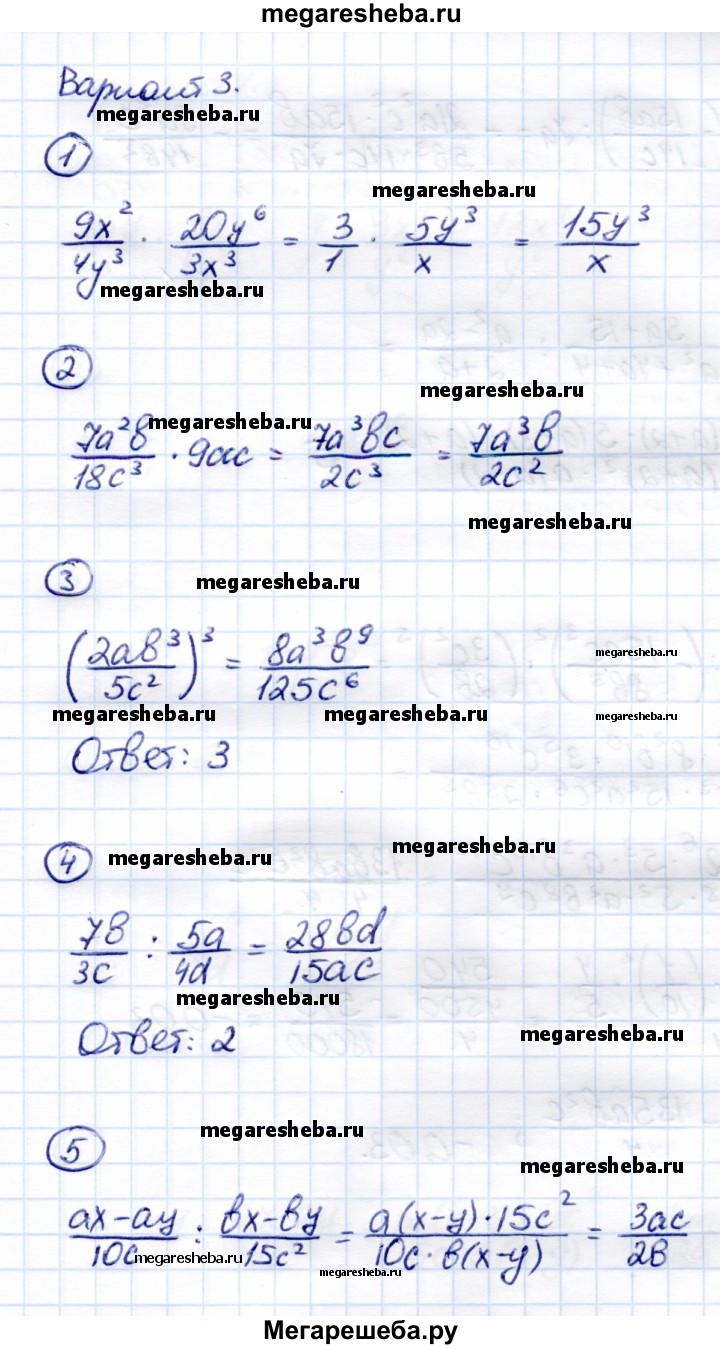 megaresheba.ru
Вариант 3.
megaresheba.ru
1
megaresheba.ru
9x²/4y³ · 20y⁶/3x³ = 3/1 · 5y³/x = 15y³/x
megaresheba.ru
2
megaresheba.ru
megaresheba.ru
7a²b/18c³ · 9ac = 7a³bc/2c³ = 7a³b/2c²
megaresheba.ru
3
megaresheba.ru
(2ab³/5c²)³ = 8a³b⁹/125c⁶
megaresheba.ru
megaresheba.ru megaresheba.ru megaresheba.ru
Ответ: 3
4 megaresheba.ru megaresheba.ru
7b/3c : 5a/4d = 28bd/15ac
megaresheba.ru
Ответ: 2
megaresheba.ru
5 megaresheba.ru
megaresheba.ru
ax-ay/10c : bx-by/15c² = a(x-y)·15c²/10c·b(x-y) = 3ac/2b
megaresheba.ru megaresheba.ru
Мегарешеба.ру